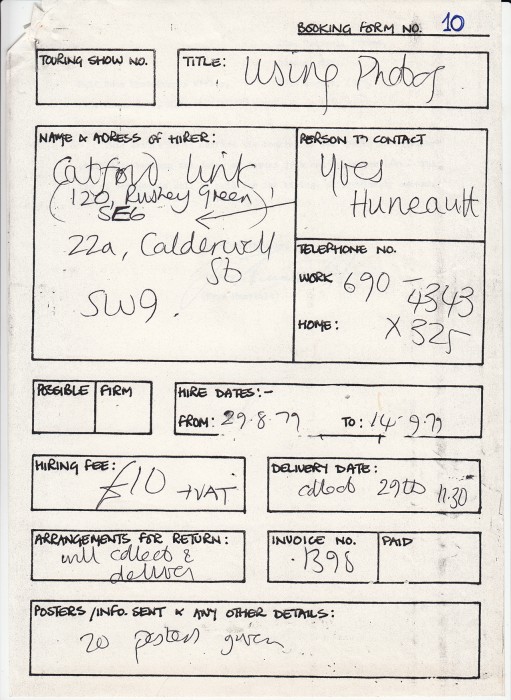 BOOKING FORM NO. 10
TOURING SHOW NO.
TITLE: Using Photos
NAME & ADRESS OF HIRER:
Catford Link
(120, Rushey Green)
SE6
22a, Calderwell
St
SW9.
PERSON TO CONTACT
Yves
Huneault
TELEPHONE NO.
WORK 690 - 4343
HOME: X 325
POSSIBLE FIRM
HIRE DATES:-
FROM: 29.8.79 TO: 14-9.79
HIRING FEE:
£10 + VAT
DELIVERY DATE:
collect 29th 11.30
ARRANGEMENTS FOR RETURN:
will collect &
deliver
INVOICE NO. PAID
1398
POSTERS / INFO. SENT & ANY OTHER DETAILS:
20 posters given